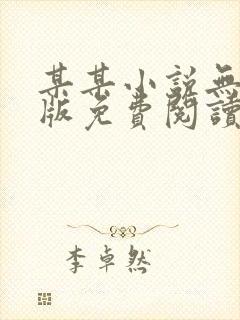 某某小説無
版免費閱讀
李卓然